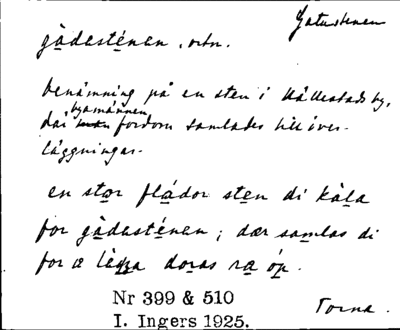 Gatustenen
gàdasténan, ortn.
benämning på en sten i Hällestads by,
där byamännen fordom samlades till över-
läggningar.
en stor fládor sten di kàla
for gàdasténan; dær samlas di
for æ lègga doras ra óp.
Nr 399 & 510
I. Ingers 1925.
Torna.